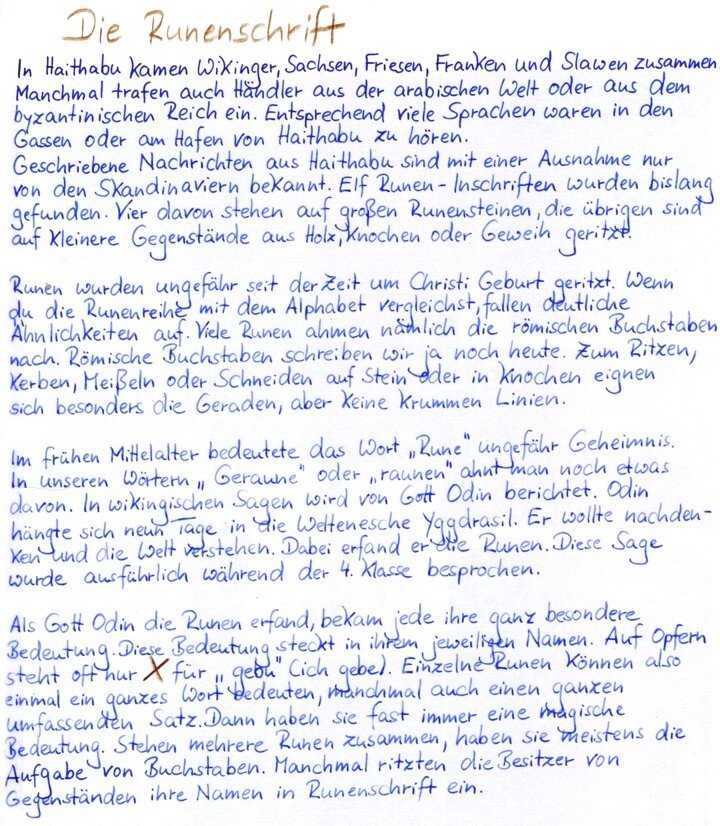 Die Runenschrift
In Haithabu kamen Wikinger, Sachsen, Friesen, Franken und Slawen zusammen
Manchmal trafen auch Händler aus der arabischen Welt oder aus dem
byzantinischen Reich ein. Entsprechend viele Sprachen waren in den
Gassen oder am Hafen von Haithabu zu hören.
Geschriebene Nachrichten aus Haithabu sind mit einer Ausnahme nur
von den Skandinaviern bekannt. Elf Runen-Inschriften wurden bislang
gefunden. Vier davon stehen auf großen Runensteinen, die übrigen sind
auf kleinere Gegenstände aus Holz, Knochen oder Geweih geritzt.
Runen wurden ungefähr seit der Zeit um Christi Geburt geritzt. Wenn
du die Runenreihe mit dem Alphabet vergleichst, fallen deutliche
Ähnlichkeiten auf. Viele Runen ahmen nämlich die römischen Buchstaben
nach. Römische Buchstaben schreiben wir ja noch heute. Zum Ritzen,
Kerben, Meißeln oder Schneiden auf Stein oder in Knochen eignen
sich besonders die Geraden, aber keine krummen Linien.
Im frühen Mittelalter bedeutete das Wort „Rune" ungefähr Geheimnis.
In unseren Wörtern „Geraune" oder „raunen" ahnt man noch etwas
davon. In wikingischen Sagen wird von Gott Odin berichtet. Odin
hängte sich neun Tage in die Weltenesche Yggdrasil. Er wollte nachden-
ken und die Welt verstehen. Dabei erfand er die Runen. Diese Sage
wurde ausführlich während der 4. Klasse besprochen.
Als Gott Odin die Runen erfand, bekam jede ihre ganz besondere
Bedeutung. Diese Bedeutung steckt in ihrem jeweiligen Namen. Auf Opfern
steht oft nur X für „gebu" (ich gebe). Einzelne Runen können also
einmal ein ganzes Wort bedeuten, manchmal auch einen ganzen
umfassenden Satz. Dann haben sie fast immer eine magische
Bedeutung. Stehen mehrere Runen zusammen, haben sie meistens die
Aufgabe von Buchstaben. Manchmal ritzten die Besitzer von
Gegenständen ihre Namen in Runenschrift ein.